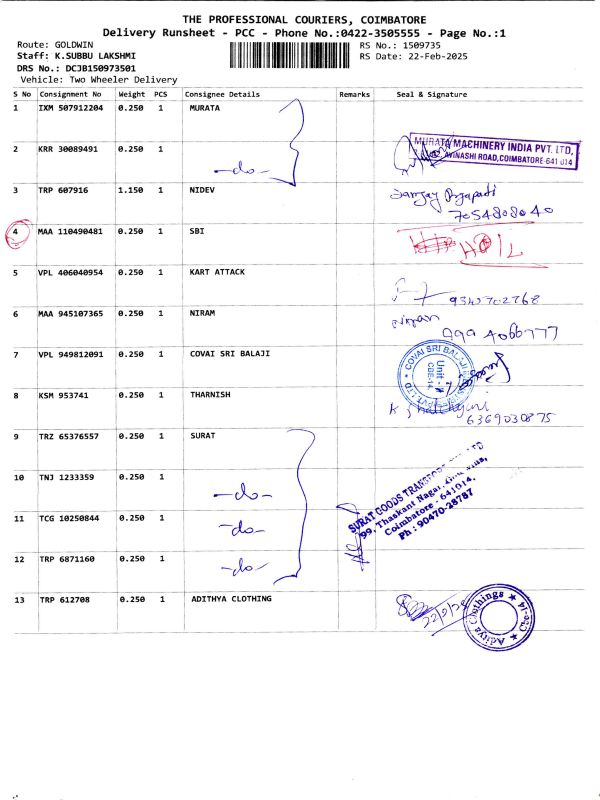 THE PROFESSIONAL COURIERS, COIMBATORE
Delivery Runsheet - PCC - Phone No.:0422-3505555 - Page No.:1
Route: GOLDWIN
RS No.: 1509735
Staff: K.SUBBU LAKSHMI
RS Date: 22-Feb-2025
DRS No.: DCJB150973501
Vehicle: Two Wheeler Delivery
S No Consignment No Weight PCS Consignee Details Remarks Seal & Signature
1 IXM 507912204 0.250 1 MURATA
MURATA MACHINERY INDIA PVT. LTD,
AVINASHI ROAD, COIMBATORE-641 014
2 KRR 30089491 0.250 1
-do-
3 TRP 607916 1.150 1 NIDEV
7054808040
4 MAA 110490481 0.250 1 SBI
5 VPL 406040954 0.250 1 KART ATTACK
6 MAA 945107365 0.250 1 NIRAM
999 4066777
7 VPL 949812091 0.250 1 COVAI SRI BALAJI
COVAI SRI BALAJI
Unit
CBE-14
PVT LTD
8 KSM 953741 0.250 1 THARNISH
6369030875
9 TRZ 65376557 0.250 1 SURAT
10 TNJ 1233359 0.250 1
-do-
SURAT GOODS TRANSPORT
99, Thaskant Nagar,
Coimbatore - 641014.
Ph : 90470-28787
11 TCG 10250844 0.250 1
-do-
12 TRP 6871160 0.250 1
-do-
13 TRP 612708 0.250 1 ADITHYA CLOTHING
22/2/25
Aditya Clothings
Cbe-14